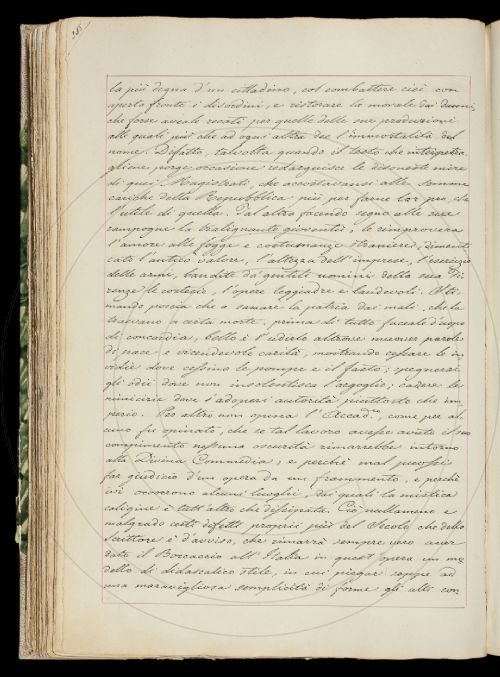 la più degna d'un cittadino, col combattere cioè con
aperta fronte i disordini, e ristorare la morale dai danni,
che forse aveale recati per quelle delle sue produzioni
alle quali più che ad ogni altra dee l'immortalità del
nome. Difatto, talvolta quando il testo che interpreta
gliene porge occasione redarguisce le disoneste mire
di quei Magistrati, che accostavansi alle somme
cariche della Repubblica più per farne lor pro, che
l'utile di quella. Tal altra facendo segno alle sue
rampogne la tralignante gioventù, le rimprovera
l'amore alle fogge e costumanze straniere, dimenti
cato l'antico valore, l'altezza dell'imprese, l'esercizio
delle armi, bandite da' gentili uomini della sua Fi-
renze le cortesie, l'opere leggiadre e laudevoli. Esti
mando poscia che a sanare la patria dai mali, che la
traevano a certa morte, prima di tutto faceale d'uopo
di concordia, bello è l'udirlo altrove muover parole
di pace e vicendevole carità, mostrando cessare le in
vidie dove cessino le pompe e il fasto; spegnersi
gli odi dove non insolentisca l'orgoglio; cadere le
nimicizie dove s'adoperi autorità piuttosto che im
perio. Per altro non opina l'Accad.co, come per al
cuno fu opinato, che se tal lavoro avesse avuto il suo
compimento nessuna oscurità rimarrebbe intorno
alla Divina Commedia; e perché mal puossi
far giudicio d'un opera da un frammento, e perché
ivi occorrono alcuni luoghi, dai quali la mistica
caligine è tutt'altro che dissipata. Ciò nullameno e
malgrado certi difetti proprii più del Secolo che dello
Scrittore è d'avviso, che rimarrà sempre vero aver
dato il Boccaccio all'Italia in quest'opera un mo
dello di didascalico stile, in cui piegar seppe ad
una maravigliosa semplicità di forme gli alti con